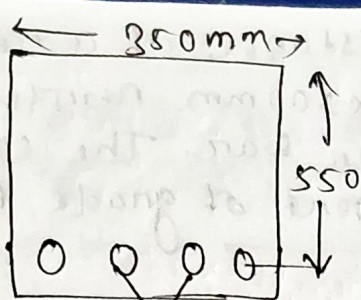 350mm
550